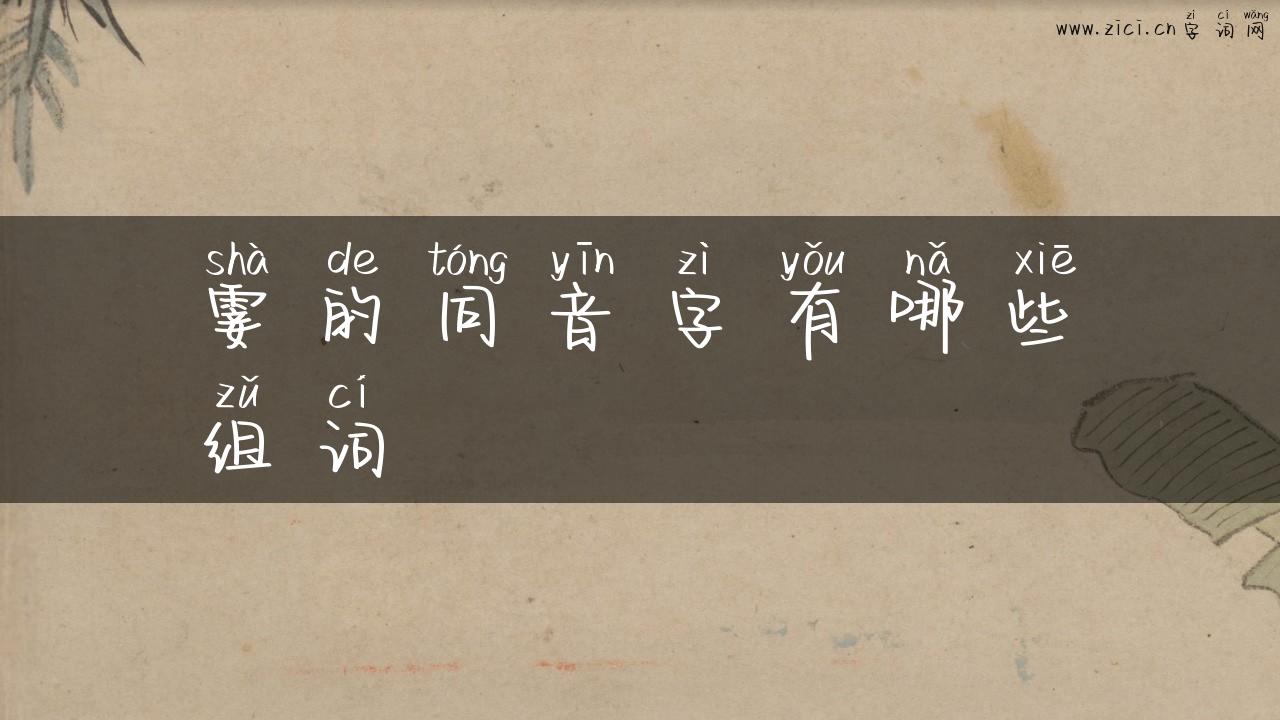 zì cí wǎng
www.zici.cn 字 词 网
shà de tóng yīn zì yǒu nǎ xiē
霎 的 同 音 字 有 哪 些
zǔ cí
组 词